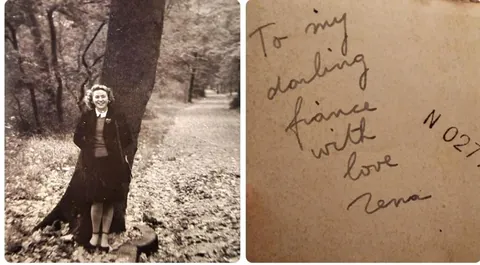 To my
darling
fiance
with
love
Zena
N 027